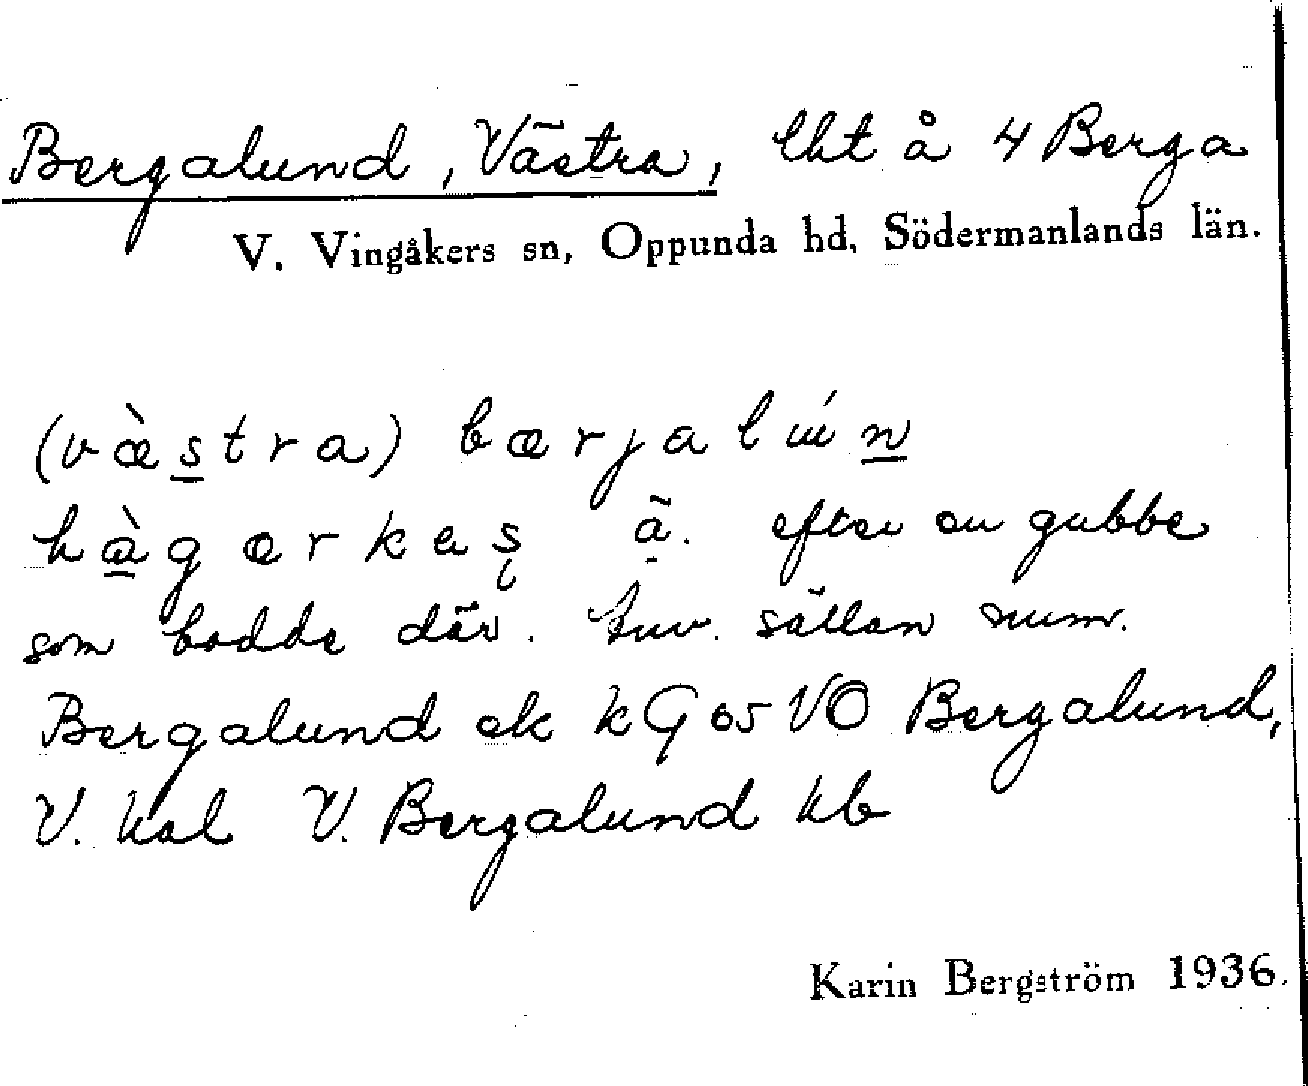 Bergalund, Västra, lht å 4 Berga
V. Vingåkers sn, Oppunda hd, Södermanlands län.
(væ̀stra) bærjalún
hàgærkaş ä. efter en gubbe
som bodde där. huv. sällan num.
Bergalund ek kG 05 VO Bergalund,
V. kal V. Bergalund kb
Karin Bergström 1936.